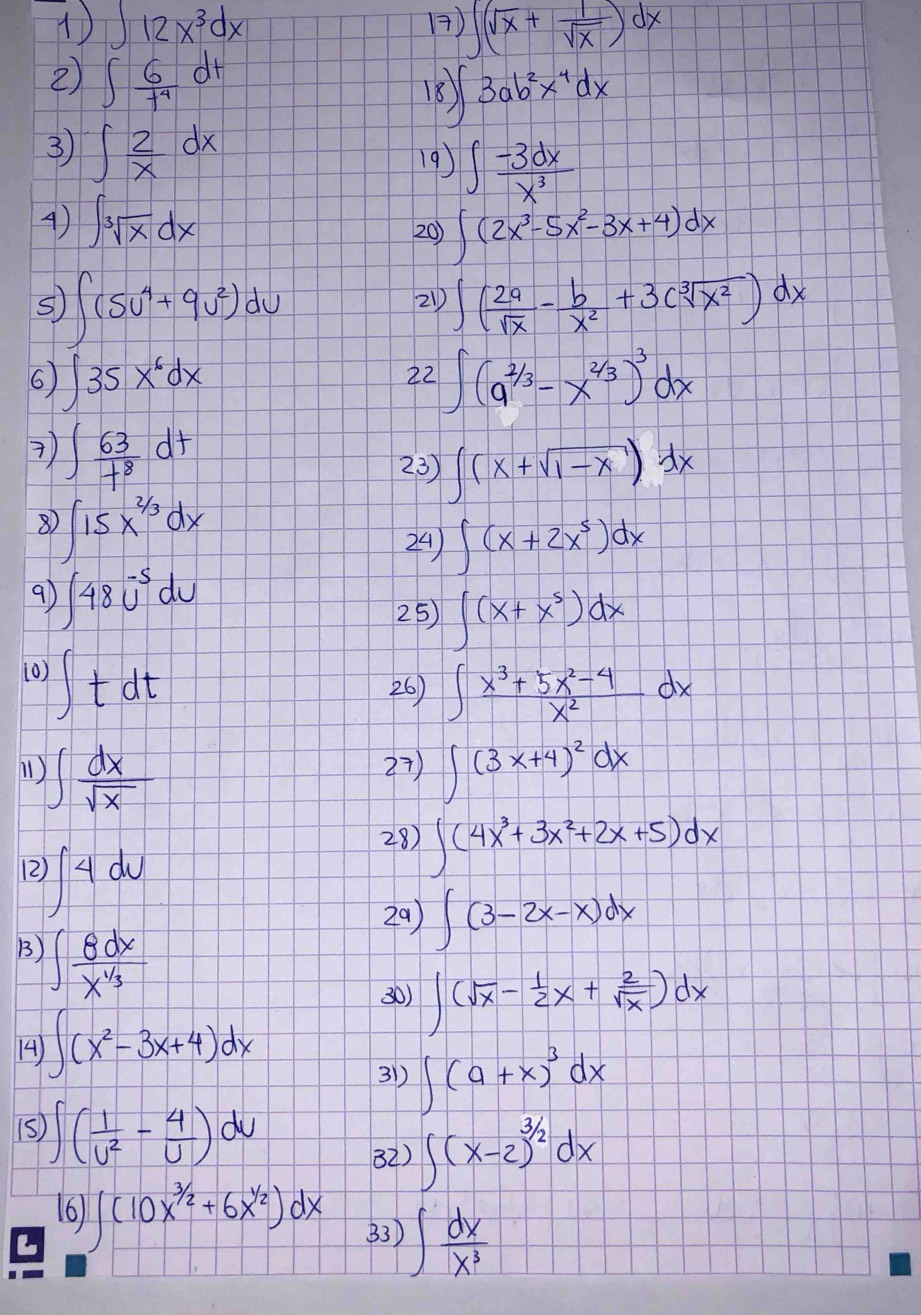 1) ∫ 12x³dx
2) ∫ 6/t⁴ dt
3) ∫ 2/x dx
4) ∫ ³√x dx
5) ∫(5u⁴ + 9u²)du
6) ∫35 x⁶dx
7) ∫ 63/t⁸ dt
8) ∫15x^2/3 dx
9) ∫48 u⁻⁵ du
10) ∫ t dt
11) ∫ dx/√x
12) ∫4 du
13) ∫ 8dx/x^1/3
14) ∫(x² – 3x+4)dx
15) ∫(1/u² – 4/u) du
16) ∫(10x^3/2 + 6x^1/2)dx
17) ∫(√x + 1/√x) dx
18) ∫ 3ab²x⁴dx
19) ∫ -3dx/x³
20) ∫ (2x³-5x²-3x+4)dx
21) ∫ (2a/√x – b/x² + 3c ³√x²) dx
22 ∫ (a^2/3 – x^2/3)³ dx
23) ∫(x + √1–x) dx
24) ∫ (x + 2x⁵)dx
25) ∫(x+ x⁵)dx
26) ∫ x³+5x²-4/x² dx
27) ∫ (3x+4)² dx
28) ∫(4x³+3x²+2x+5)dx
29) ∫ (3–2x–x)dx
30) ∫(√x – 1/2x + 2/√x) dx
31) ∫ (a+x)³ dx
32) ∫(x–2)^3/2 dx
33) ∫ dx/x³